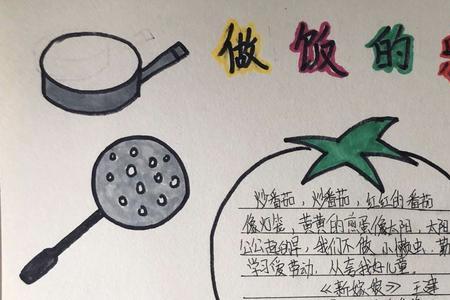 做饭的
炒番茄，炒番茄，红红的番茄
像灯笼，黄黄的煎蛋像太阳，太阳
公公起得早，我们不做小懒虫，勤
学习爱劳动，从喜我好儿童。
《新嫁饭》王建